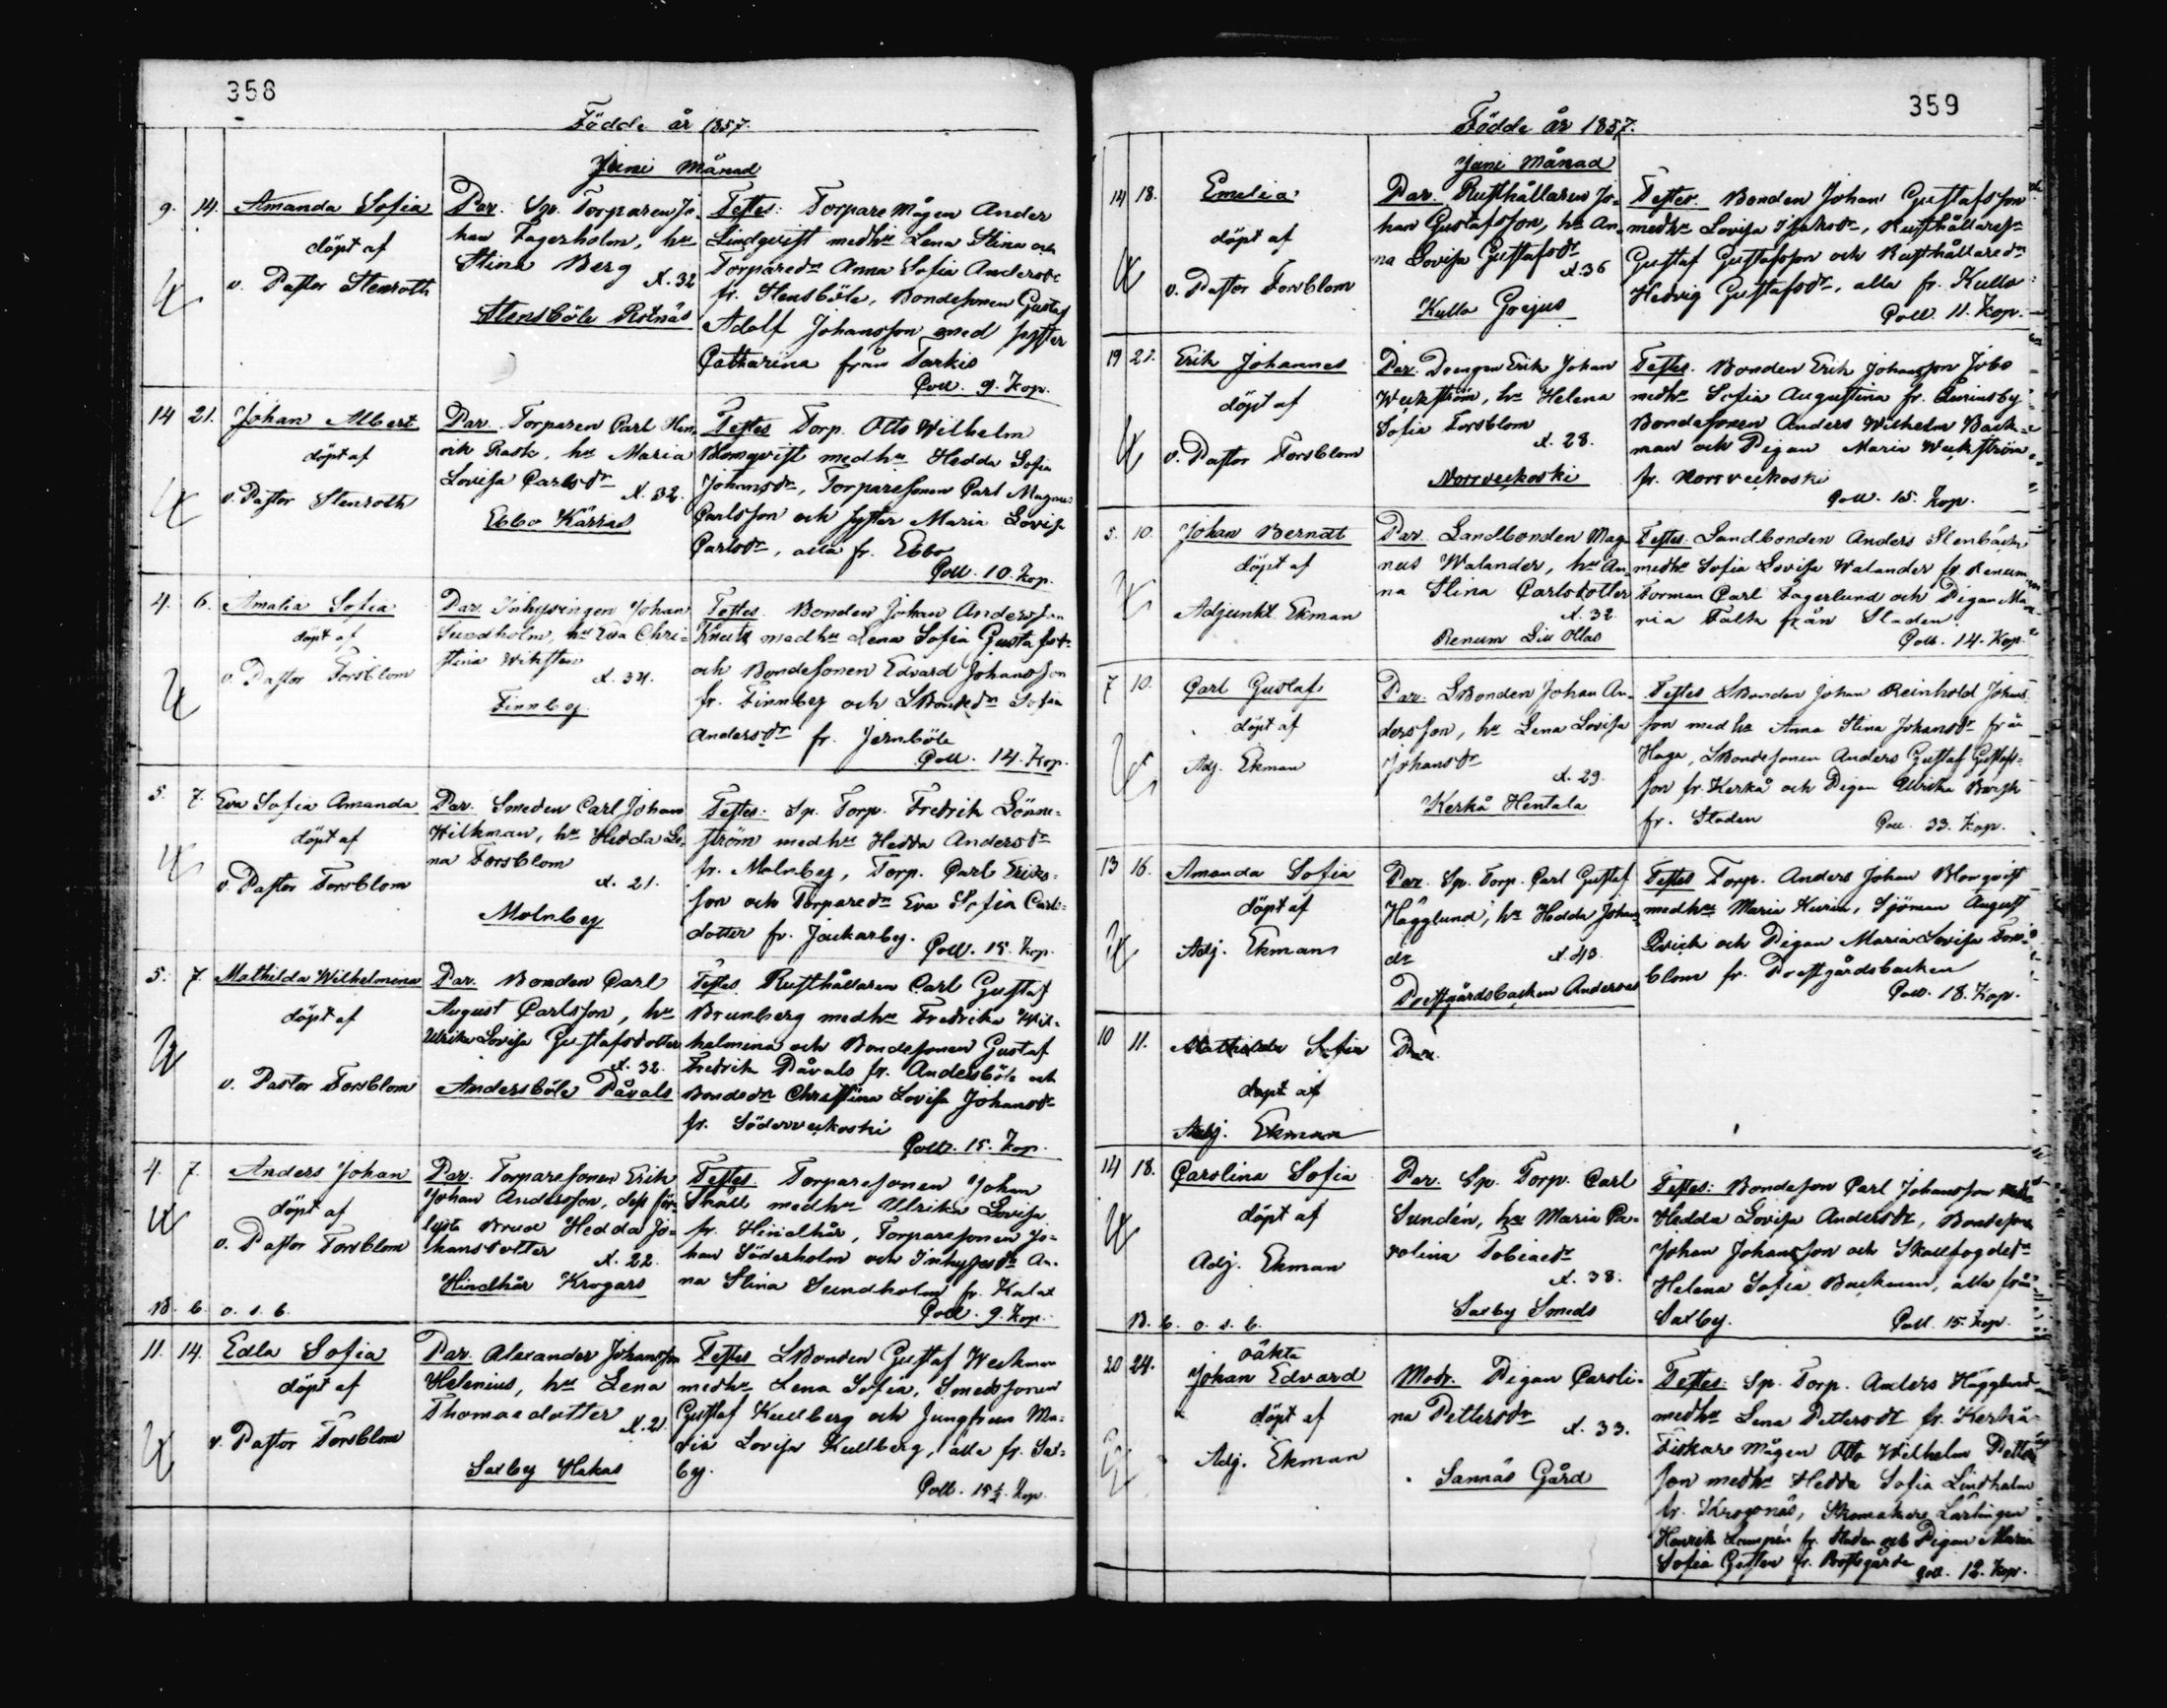 358
Födde år 1857.
Juni Månad
9. 14. Amanda Sofia
döpt af
v. Pastor Stenroth
Par. Sp. Torparen Jo-
han Fagerholm, hu
Stina Berg
N. 32
Stensböle Rotnäs
Testes: Torpare Mågen Ander
Lindqvist med hu Lena Stina och
Torparedr Anna Sofia Andersdr
fr. Stensböle, Bondesonen Gustaf
Adolf Johansson med syster
Catharina från Tarkis
Coll. 9. Kop.
14 21. Johan Albert
döpt af
v. Pastor Stenroth
Par. Torparen Carl Hen-
rik Rask, hu Maria
Lovisa Carlsdr
N. 32.
Ebbo Kärras
Testes Torp. Otto Wilhelm
Blomqvist med hu Hedda Sofia
Johansdr, Torparesonen Carl Magnus
Carlsson och syster Maria Lovisa
Carlsdr, alla fr. Ebbo
Coll. 10. Kop.
4. 6. Amalia Sofia
döpt af
v. Pastor Forsblom
Par. Inhysingen Johan
Sundholm, hu Eva Chri-
stina Wiksten
N. 34.
Finnby
Testes. Bonden Johan Andersson
Knuts med hu Lena Sofia Gustafsdr
och Bondesonen Edvard Johansson
fr. Finnby och LBondedr Sofia
Andersdr fr. Jernböle
Coll. 14. Kop.
5. 7. Eva Sofia Amanda
döpt af
v. Pastor Forsblom
Par. Smeden Carl Johan
Hilkman, hu Hedda Le-
na Forsblom
N. 21.
Molnby
Testes: Sp. Torp. Fredrik Lönn-
ström med hu Hedda Andersdr
fr. Molnby, Torp. Carl Eriks-
son och Torparedr Eva Sofia Carls-
dotter fr. Jackarby.
Coll. 15. Kop.
5. 7. Mathilda Wilhelmina
döpt af
v. Pastor Forsblom
Par. Bonden Carl
August Carlsson, hu
Ulrika Lovisa Gustafsdotter
N. 32.
Andersböle Påvals
Testes Rusthållaren Carl Gustaf
Brunberg med hu Fredrika Wil-
helmina och Bondesonen Gustaf
Fredrik Påvals fr. Andersböle och
Bondedr Christina Lovisa Johansdr
fr. Söderveckoski
Coll. 15. Kop.
4. 7. Anders Johan
döpt af
v. Pastor Forsblom
Par. Torparesonen Erik
Johan Andersson, dess för-
lysta Brud Hedda Jo-
hansdotter
N. 22.
Hindhår Krogars
Testes. Torparesonen Johan
Snäll med hu Ulrika Lovisa
fr. Hindhår, Torparesonen Jo-
han Söderholm och Inhysesdr An-
na Stina Sundholm fr. Kalax
Coll. 9. Kop.
18. 6. o. s. b.
11. 14. Edla Sofia
döpt af
v. Pastor Forsblom
Par. Alexander Johansson
Helenius, hu Lena
Thomasdotter
N. 21
Saxby Hakas
Testes LBonden Gustaf Weckman
med hu Lena Sofia, Smedssonen
Gustaf Kullberg och Jungfrun Ma-
ria Lovisa Kullberg, alla fr. Sax-
by.
Coll. 15½. Kop.
359
Födde år 1857.
Juni Månad
14 18. Emelia
döpt af
v. Pastor Forsblom
Par. Rusthållaren Jo-
han Gustafsson, hu An-
na Lovisa Gustafsdr
N. 36
Kullo Grejus
Testes. Bonden Johan Gustafsson
med hu Lovisa Isaksdr, Rusthållaresn
Gustaf Gustafsson och Rusthållaredr
Hedvig Gustafsdr, alla fr. Kullo
Coll. 11. Kop.
19 21. Erik Johannes
döpt af
v. Pastor Forsblom
Par. Drengen Erik Johan
Weckström, hu Helena
Sofia Forsblom
N. 28.
Norrveckoski
Testes. Bonden Erik Johansson Jobo
med hu Sofia Augustina fr.
Bondesonen Anders Wilhelm Back-
man och Pigan Maria Weckström
fr. Norrveckoski
Coll. 15. Kop.
5. 10. Johan Berndt
döpt af
Adjunkt Ekman
Par. Landbonden Mag-
nus Walander, hu An-
na Stina Carlsdotter
N. 32.
Renum Lill Ollas
Testes. Landbonden Anders Stenbäck
med hu Sofia Lovisa Walander fr. Renum
Forman Carl Fagerlund och Pigan Ma-
ria Falk från Staden
Coll. 14. Kop.
7 10. Carl Gustaf
döpt af
Adj. Ekman
Par. LBonden Johan An-
dersson, hu Lena Lovisa
Johansdr
N. 29.
Kerkå Hentala
Testes LBonden Johan Reinhold Johans-
son med hu Anna Stina Johansdr från
Haga, LBondesonen Anders Gustaf Gustafs-
son fr. Kerkå och Pigan Ulrika Bergh
fr. Staden
Coll. 33. Kop.
13 16. Amanda Sofia
döpt af
Adj. Ekman
Par. Sp. Torp. Carl Gustaf
Hägglund, hu Hedda Johans-
dr
N. 43.
Prestgårdsbacken Anderses
Testes Torp. Anders Johan Blomqvist
med hu Maria, Sjöman August
Qvick och Pigan Maria Lovisa Fors-
blom fr. Prestgårdsbacken
Coll. 18. Kop.
10 11. Mathilda Sofia
döpt af
Adj. Ekman
Par.
14 18. Carolina Sofia
döpt af
Adj. Ekman
Par. Sp. Torp. Carl
Sundén, hu Maria Ca-
rolina Tobiaedr
N. 38.
Saxby Smeds
Testes: Bondeson Carl Johansson med hu
Hedda Lovisa Andersdr, Bondeson
Johan Johansson och Skallfogdedr
Helena Sofia Backman, alla från
Saxby.
Coll. 15 Kop.
18. 6. o. s. b.
20 24. oäkta
Johan Edvard
döpt af
Adj. Ekman
Modr. Pigan Caroli-
na Pettersdr
N. 33.
Sannäs Gård
Testes: Sp. Torp. Anders Hägglund
med hu Lena Pettersdr fr. Kerkå
Fiskare Mågen Otto Wilhelm Petters-
son med hu Hedda Sofia Lindholm
fr. Krogsnäs, Skomakare Lärlingen
Henrik Lampén fr. Staden och Pigan Maria
Sofia fr. Prestgården
Coll. 12. Kop.